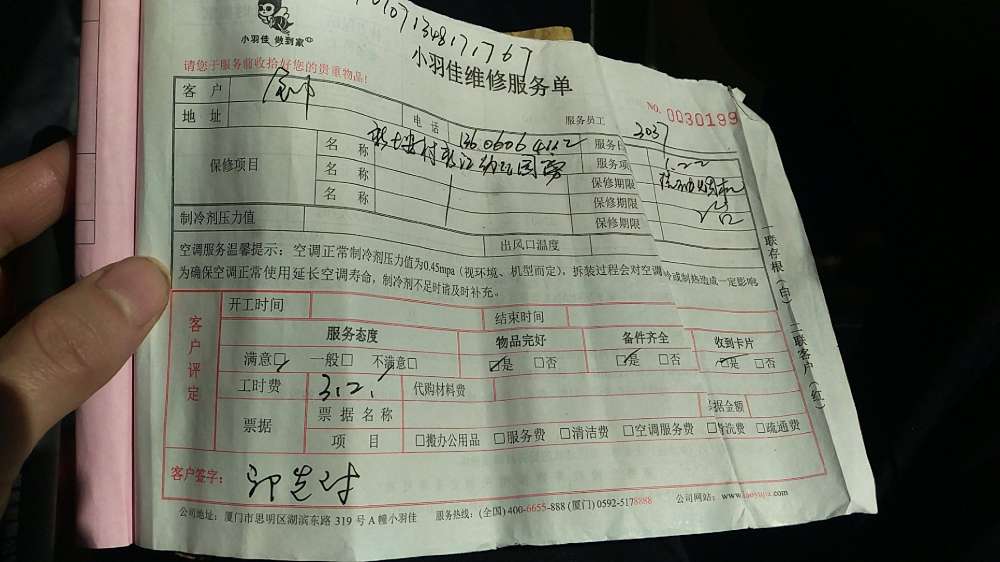 小羽佳 做到家
小羽佳维修服务单
请您于服务前收拾好您的贵重物品!
服务员工 2037
NO. 0030199
客 户
地 址
电 话 136 0606 4112
服务日 1.22
保修项目
名 称
服务项
名 称
保修期限
名 称
保修期限
保修期限
制冷剂压力值
出风口温度
空调服务温馨提示：空调正常制冷剂压力值为0.45mpa（视环境、机型而定），拆装过程会对空调冷或制热造成一定影响
为确保空调正常使用延长空调寿命，制冷剂不足时请及时补充。
一联存根（白） 二联客户（红）
客户评定
开工时间
结束时间
服务态度
物品完好
备件齐全
收到卡片
满意□ 一般□ 不满意□
☑是 □否
☑是 □否
☑是 □否
工时费
代购材料费
票据
票 据 名 称
据金额
项 目
□搬办公用品 □服务费 □清洁费 □空调服务费 洗费 □疏通费
客户签字：
公司地址：厦门市思明区湖滨东路 319 号 A 幢小羽佳
服务热线：(全国) 400-6655-888 (厦门) 0592-5178888
公司网站：www.xiaoyujia.com